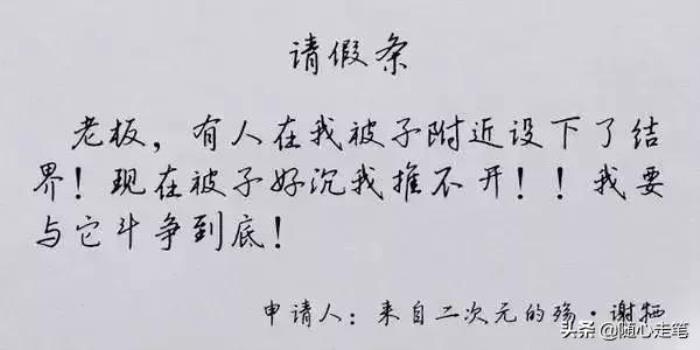 请假条
老板，有人在我被子附近设下了结
界！现在被子好沉我推不开！！我要
与它斗争到底！
申请人：来自二次元的殇·谢牺
头条 @随心走笔